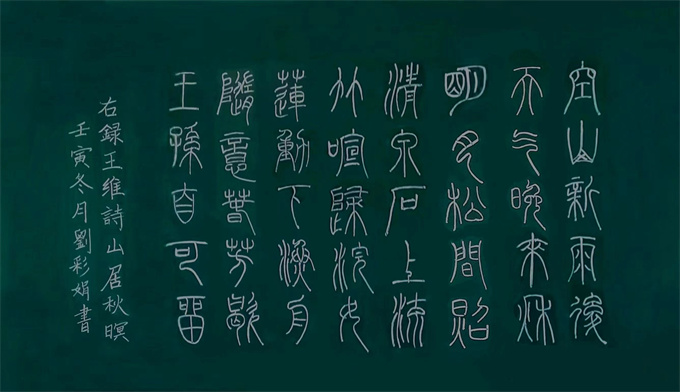 空山新雨後
天气晚來秋
明月松間照
清泉石上流
竹喧歸浣女
蓮動下漁舟
隨意春芳歇
王孫自可留
右録王維詩山居秋暝
壬寅冬月劉彩娟書